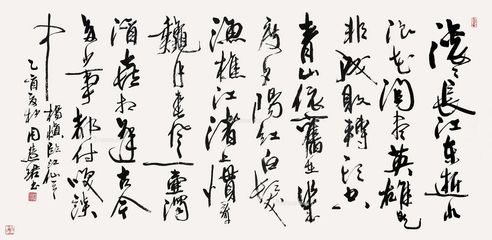 滚々長江东逝水
浪花淘尽英雄是
非成敗轉头空
青山依舊在幾
度夕陽红白髮
漁樵江渚上惯看
秋月春风一壶濁
酒喜相逢古今
多少事都付笑談
中
楊慎临江仙
乙酉夏 周 书